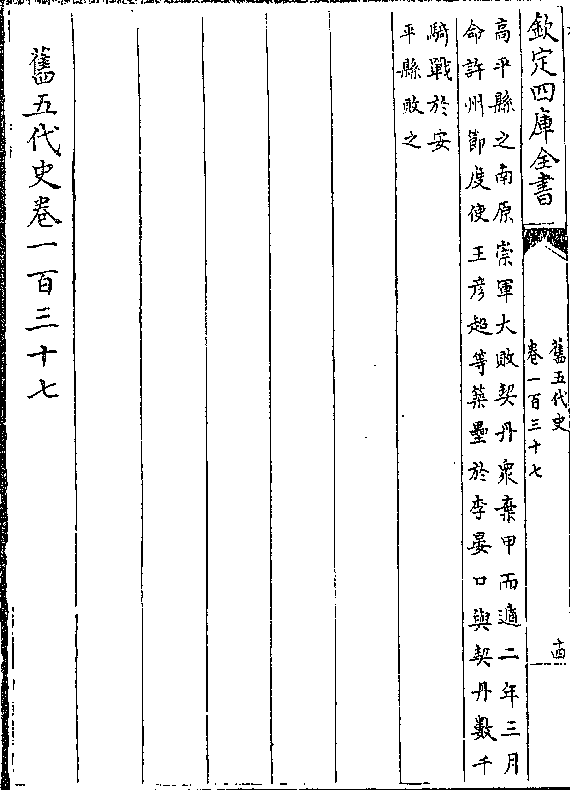 欽定四庫全書
舊五代史
卷一百三十七
十四
高平縣之南原崇軍大敗契丹衆棄甲而遁二年三月
命許州節度使王彦超等築壘於李晏口與契丹數千
騎戰於安
平縣敗之
舊五代史卷一百三十七